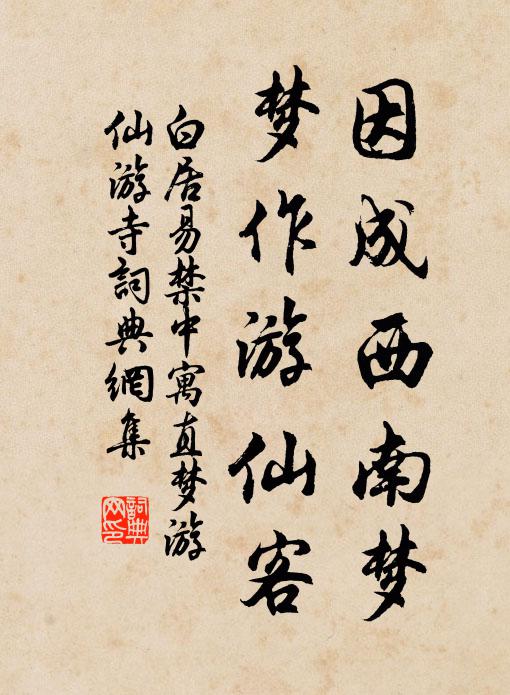 因成西南梦
梦作游仙客
白居易禁中寓直梦游
仙游寺詞典網集
詞典
网印